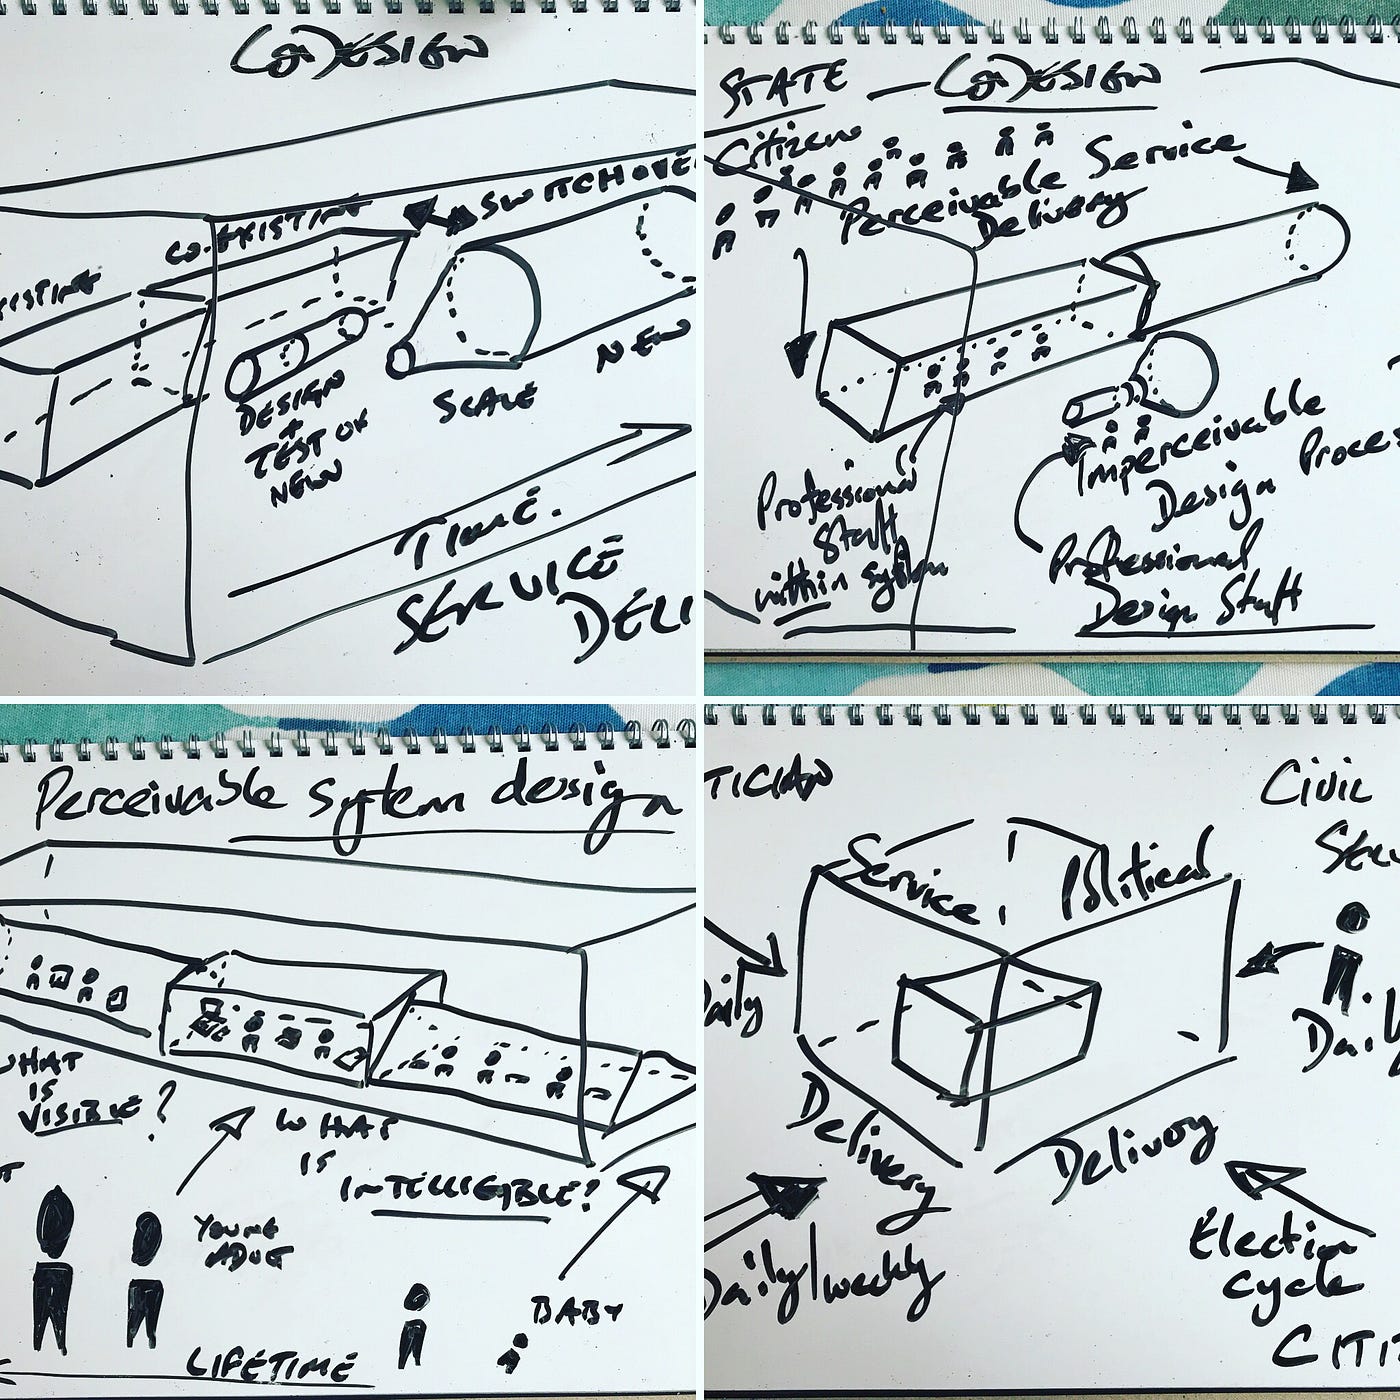 (CO)DESIGN
SWITCHOVE
CO-EXISTING
XISTING
NEW
SCALE
DESIGN
+
TEST OF
NEW
TIME.
SERVICE
DELI
STATE — (CO)DESIGN
Citizens
Perceivable Service
Delivery
Imperceivable
Design Proces
Professional
Staff
within system
Professional
Design Staff
Perceivable system design
WHAT
IS
VISIBLE?
WHAT
IS
INTELLIGIBLE?
YOUNG
ADULT
BABY
LIFETIME
TICIAN
Civic
Service Political
Daily
Daily
Delivery
Delivery
Daily/weekly
Election
cycle
CITI